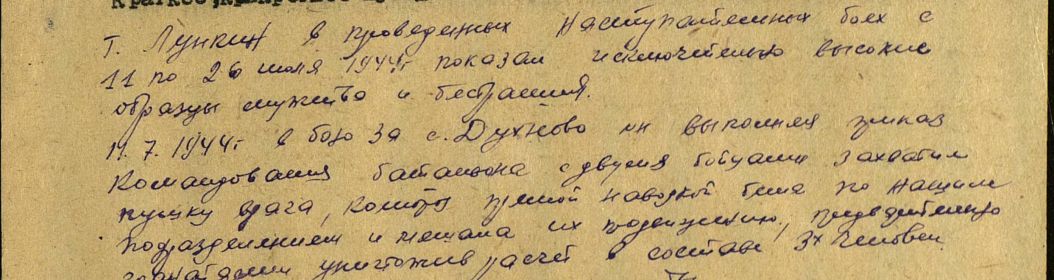 Краткое, конкретное
т. Лункин в проведенных наступательных боях с
11 по 26 июля 1944г показал исключительно высокие
образцы мужества и бесстрашия.
11.7.1944г в бою за с. Духново он выполняя приказ
командования батальона с двумя бойцами захватил
пушку врага, которая прямой наводкой била по нашим
подразделениям и мешала их продвижению, предварительно
гранатами уничтожив расчет в составе 3х человек.